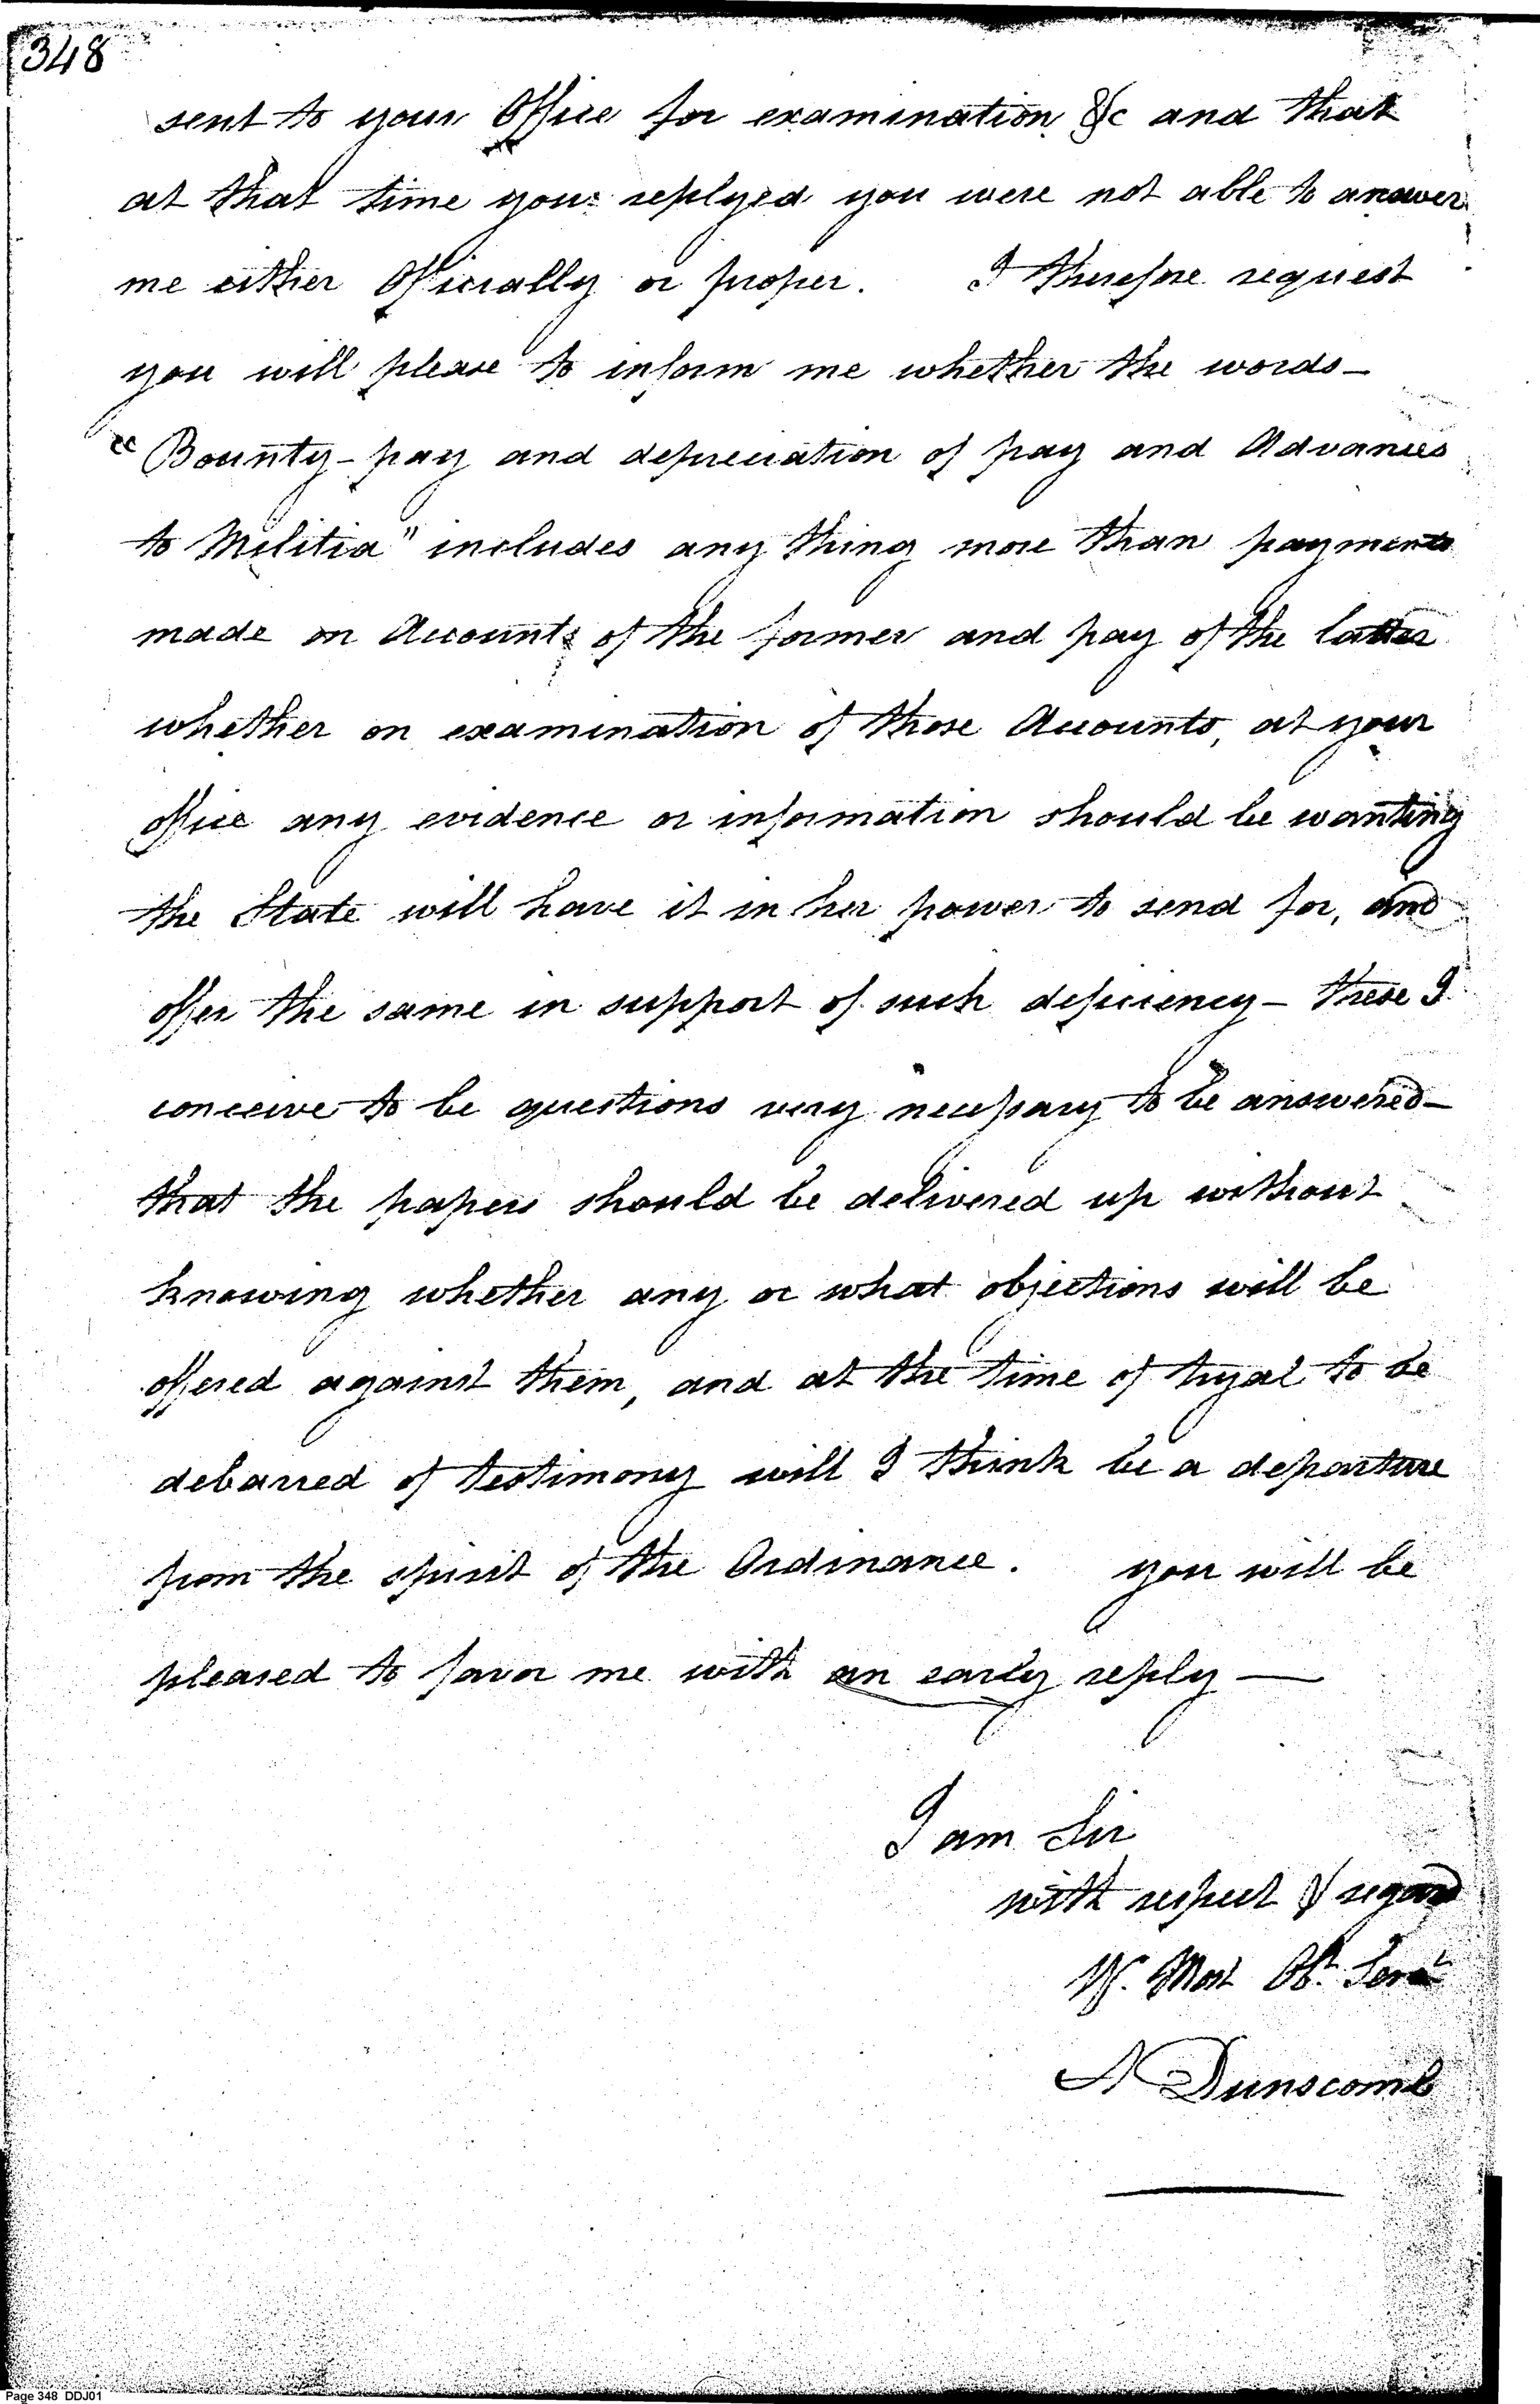 348
sent to your Office for examination &c and that
at that time you replyed you were not able to answer
me either Officially or proper. I therefore request
you will please to inform me whether the words—
"Bounty-pay and depreciation of pay and Advances
to Militia" includes any thing more than payments
made on Accounts of the former and pay of the latter
whether on examination of those Accounts, at your
office any evidence or information should be wanting
the State will have it in her power to send for, and
offer the same in support of such deficiency— these I
conceive to be questions very necessary to be answered—
that the papers should be delivered up without
knowing whether any or what objections will be
offered against them, and at the time of tryal to be
debarred of testimony will I think be a departure
from the spirit of the Ordinance. you will be
pleased to favor me with an early reply—
I am Sir
with respect & regard
Yr. Most Obt. Servt
A Dunscomb
Page 348 DDJ01